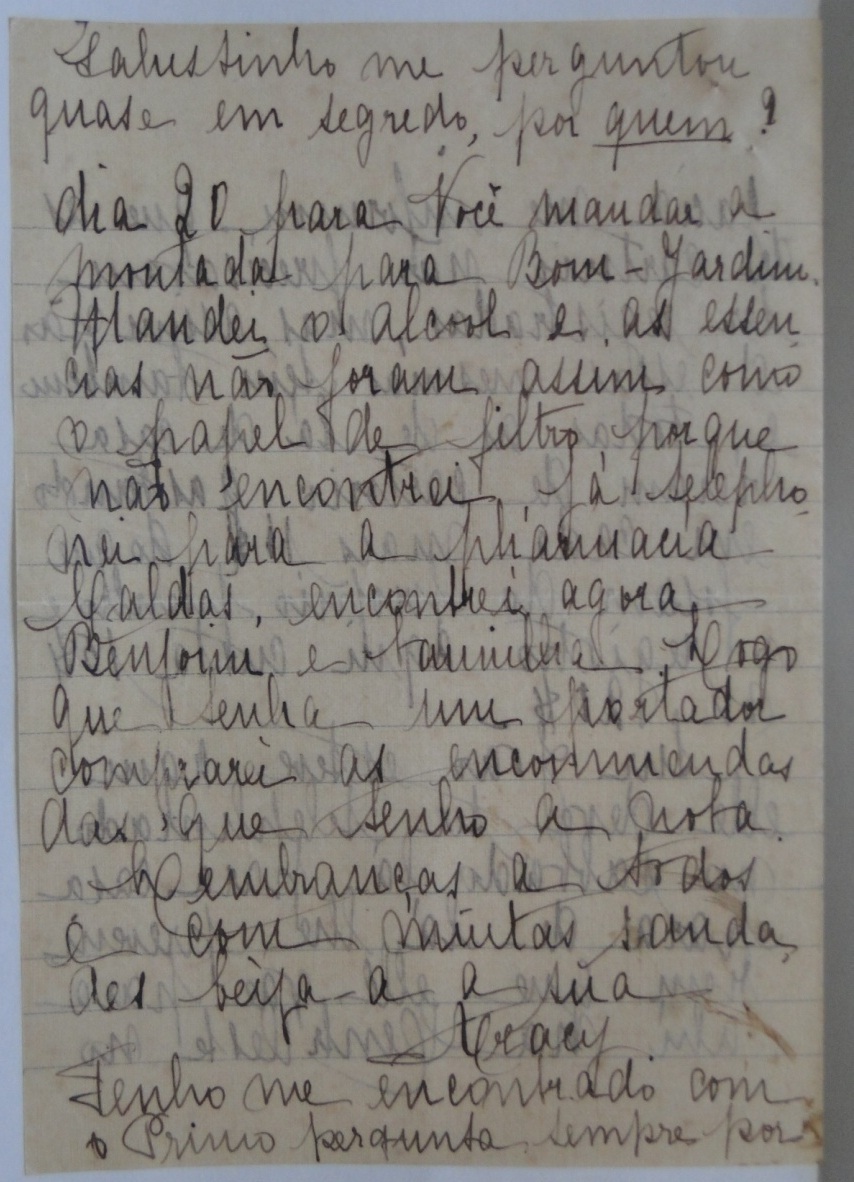 Salustinho me perguntou
quase em segredo, por quem?
dia 20 para Você mandar a
montada para Bom-Jardim.
Mandei o alcool e as essen
cias não foram assim como
o papel de filtro porque
não encontrei, já telepho
nei para a pharmacia
Caldas, encontrei agora
Benjoim e baunilha. Logo
que tenha um portador
comprarei as encommendas
das que tenho a nota.
Lembranças a todos
e com muitas sauda
des beija-a a sua
Aracy
Tenho me encontrado com
o Primo pergunta sempre por